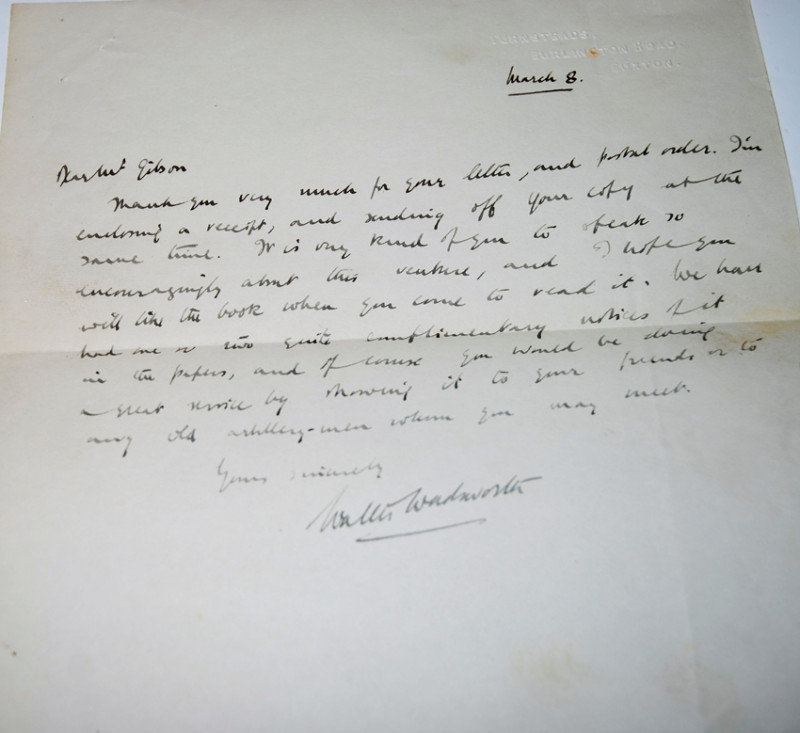 TURNSTEADS,
BURLINGTON ROAD,
BUXTON.
March 8.
Dear Mr Gibson
Thank you very much for your letter, and postal order. I'm
enclosing a receipt, and sending off your copy at the
same time. It is very kind of you to speak so
encouragingly about this venture, and I hope you
will like the book when you come to read it. We have
had one or two quite complimentary notices of it
in the papers, and of course you would be doing
a great service by showing it to your friends or to
any old artillery-men whom you may meet.
Yours sincerely
Walter Wadsworth